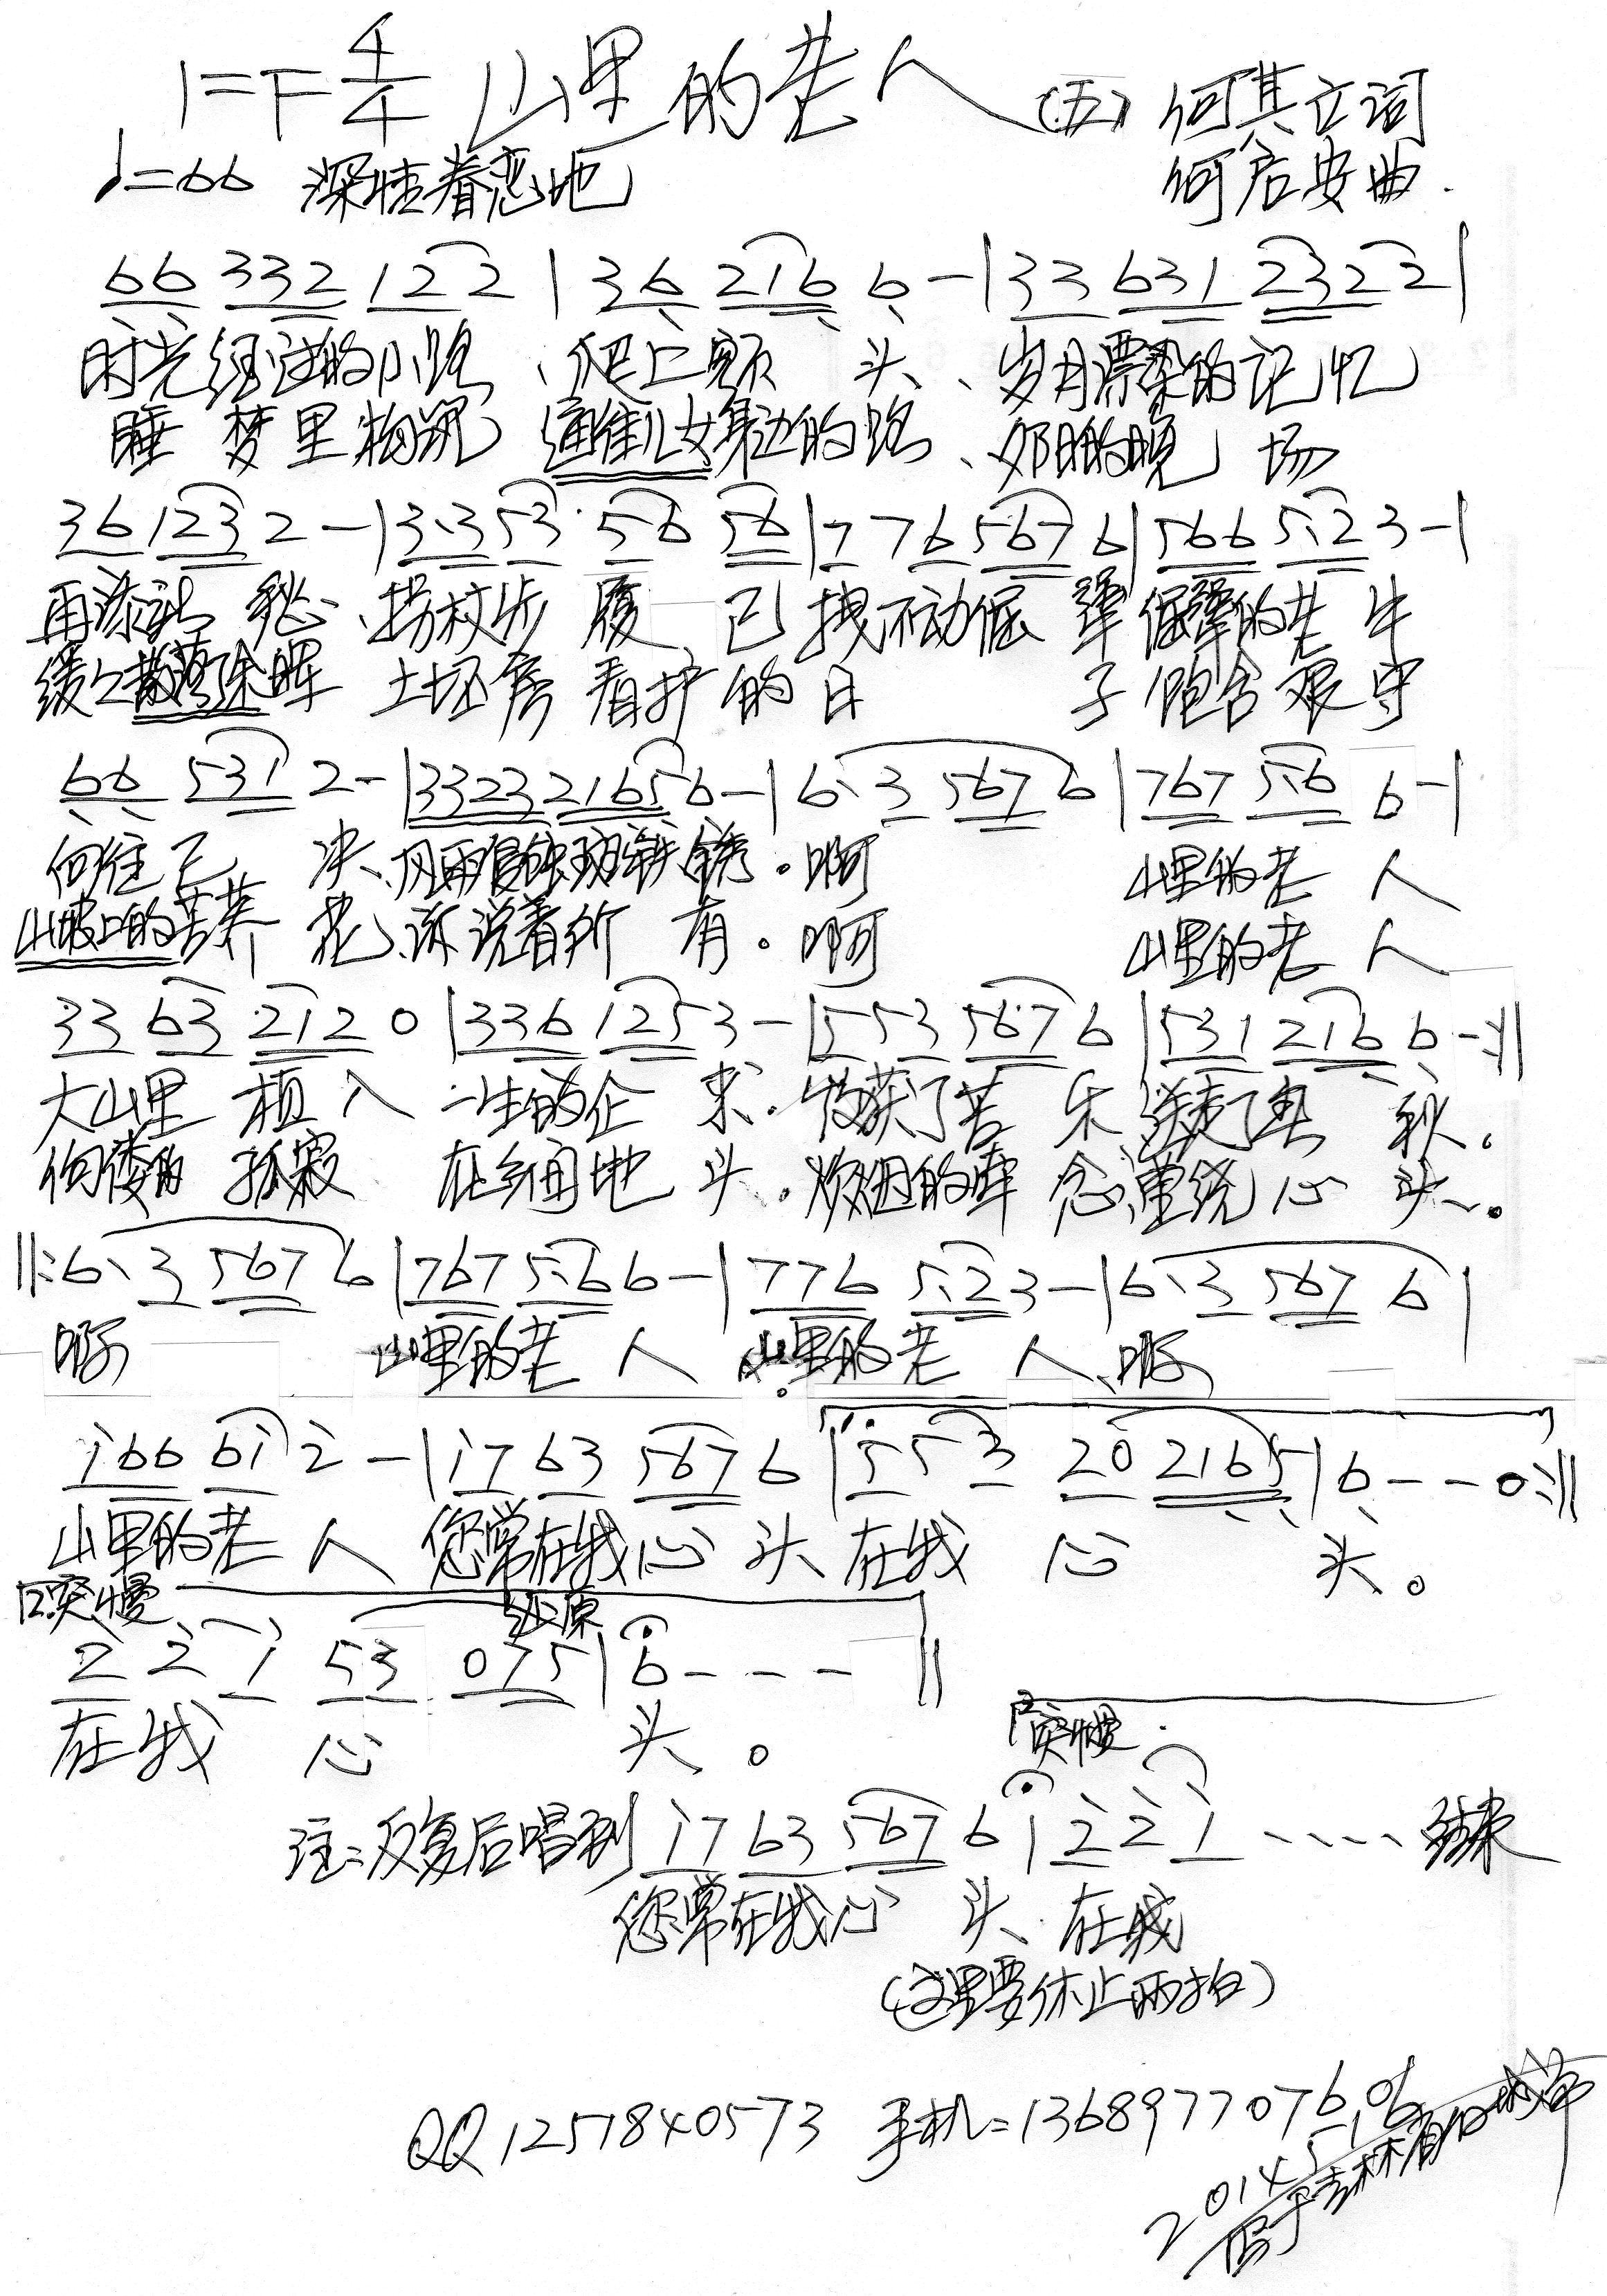 1=F 4/4 山里的老人 (五) 何其立词
♩=66 深情眷恋地 何启安曲
66 332 122 | 36 216 6 - | 33 631 2322 |
时光经过的小路、爬上额头、岁月漂染的记忆
睡梦里 通往儿女身边的路、的晚
36 123 2 - | 3.3 53 56 56 | 7 76 567 6 | 566 5.2 3 - |
再添新愁、拐杖步履 已拽不动倔犟倔犟的老牛
缓缓散落余晖 土坯房看护的日子饱含艰守
66 531 2 - | 3323 2165 6 - | 6. 3 567 6 | 767 5.6 6 - |
何往已 、风雨 锈。啊 山里的老人
山坡上的苦荞花、诉说着所有。啊 山里的老人
33 63 212 0 | 336 125 3 - | 553 567 6 | 531 216 6 - :||
大山里植入一生的企求.收获了苦乐送走了春秋。
佝偻的孤寂 在田地头.炊烟的牵念、萦绕心头。
||: 6. 3 567 6 | 767 5.6 6 - | 776 5.2 3 - | 6. 3 567 6 |
啊 山里的老人 山里的老人、啊
166 61 2 - | 17 63 567 6 | 5 5 3 20 2165 | 6 - - 0 :||
山里的老人 您常在我心头 在我心头。
2.突慢 还原
2 2 1 53 075 | 6 - - - ||
在我心头。
2.突慢
注:反复后唱到 17 63 567 6 | 2 2 1 ····· 结束
您常在我心头、在我
(这里要休止两拍)
QQ1257840573 手机=1368977076
2014.5.06
写于吉林省